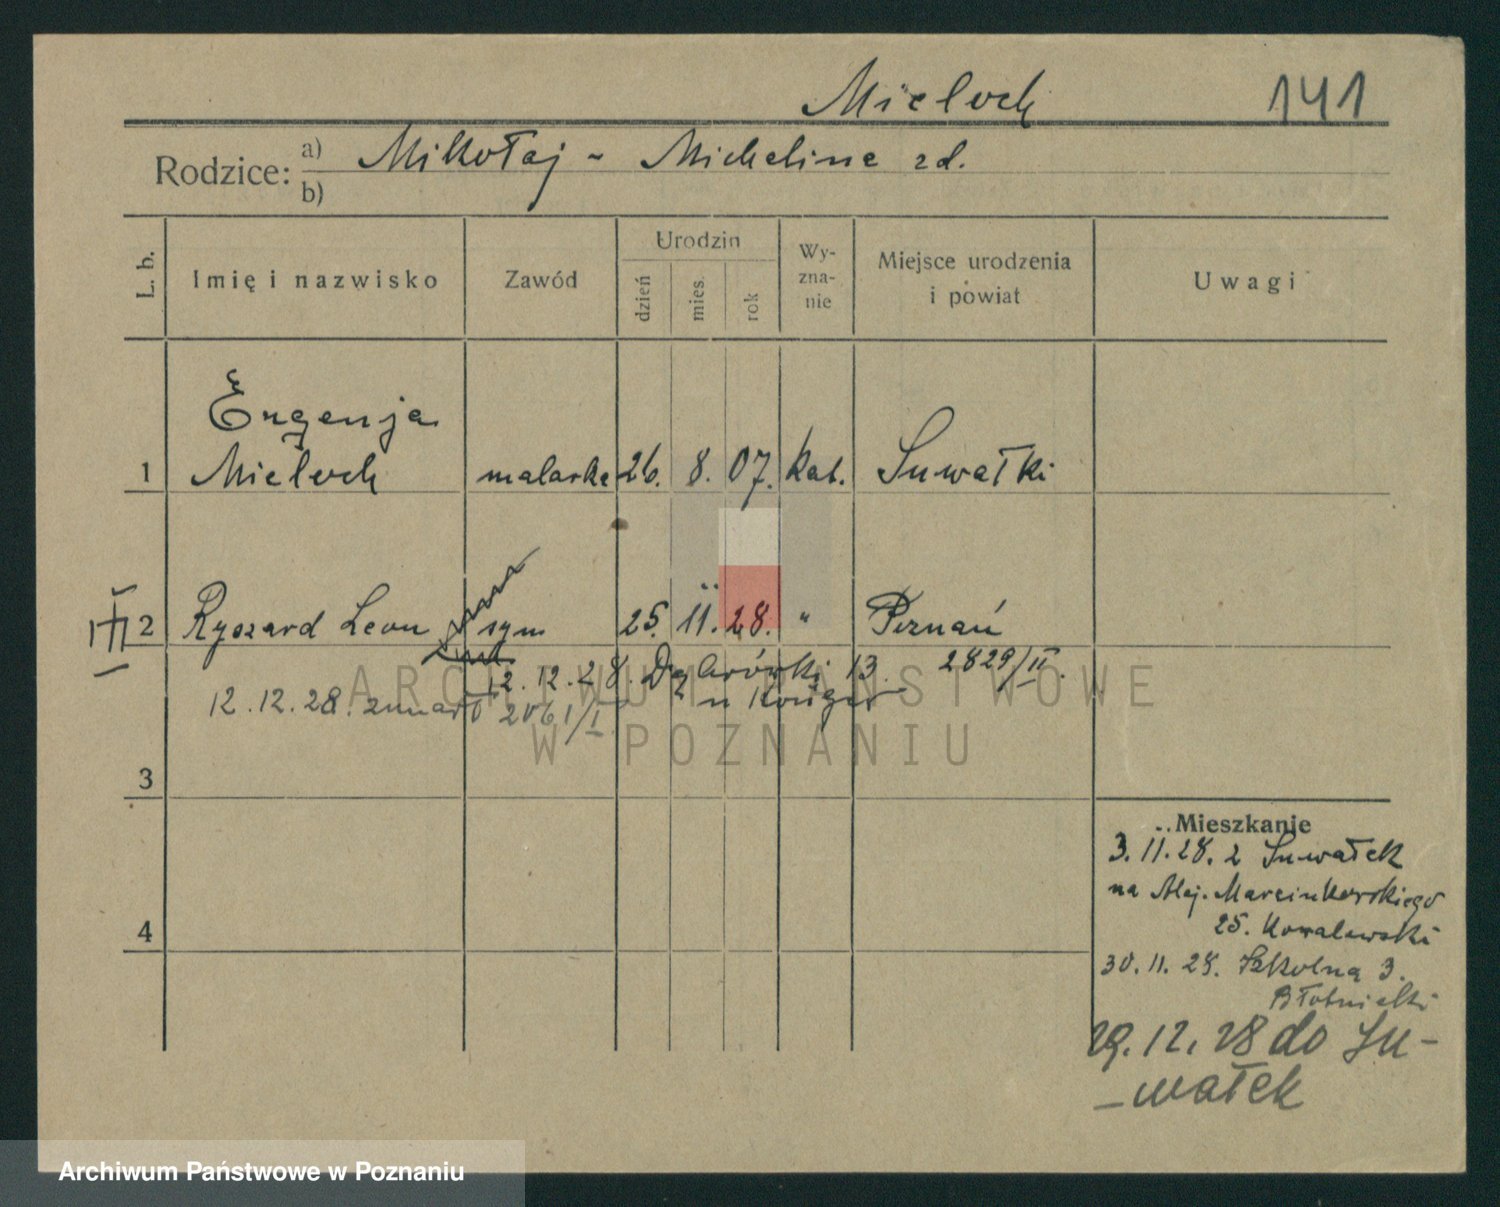 Mieloch 141
Rodzice: a) Mikołaj - Michelina zd.
b)
L. b. Imię i nazwisko Zawód Urodzin dzień mies. rok Wy-zna-nie Miejsce urodzenia i powiat Uwagi
Eugenja
1 Mieloch malarka 26. 8. 07. kat. Suwałki
2 Ryszard Leon syn 25. 11. 28. " Poznań
12.12.28. Dąbrówki 13. 2829/II.
12.12.28. zmarł 2061/I
3
Mieszkanie
3. 11. 28. z Suwałek
na Alej. Marcinkowskiego
4
25. Kowalewski
30. 11. 28. Szkolna 3.
29. 12. 28 do Su-
-wałek
ARCHIWUM PAŃSTWOWE
W POZNANIU
Archiwum Państwowe w Poznaniu